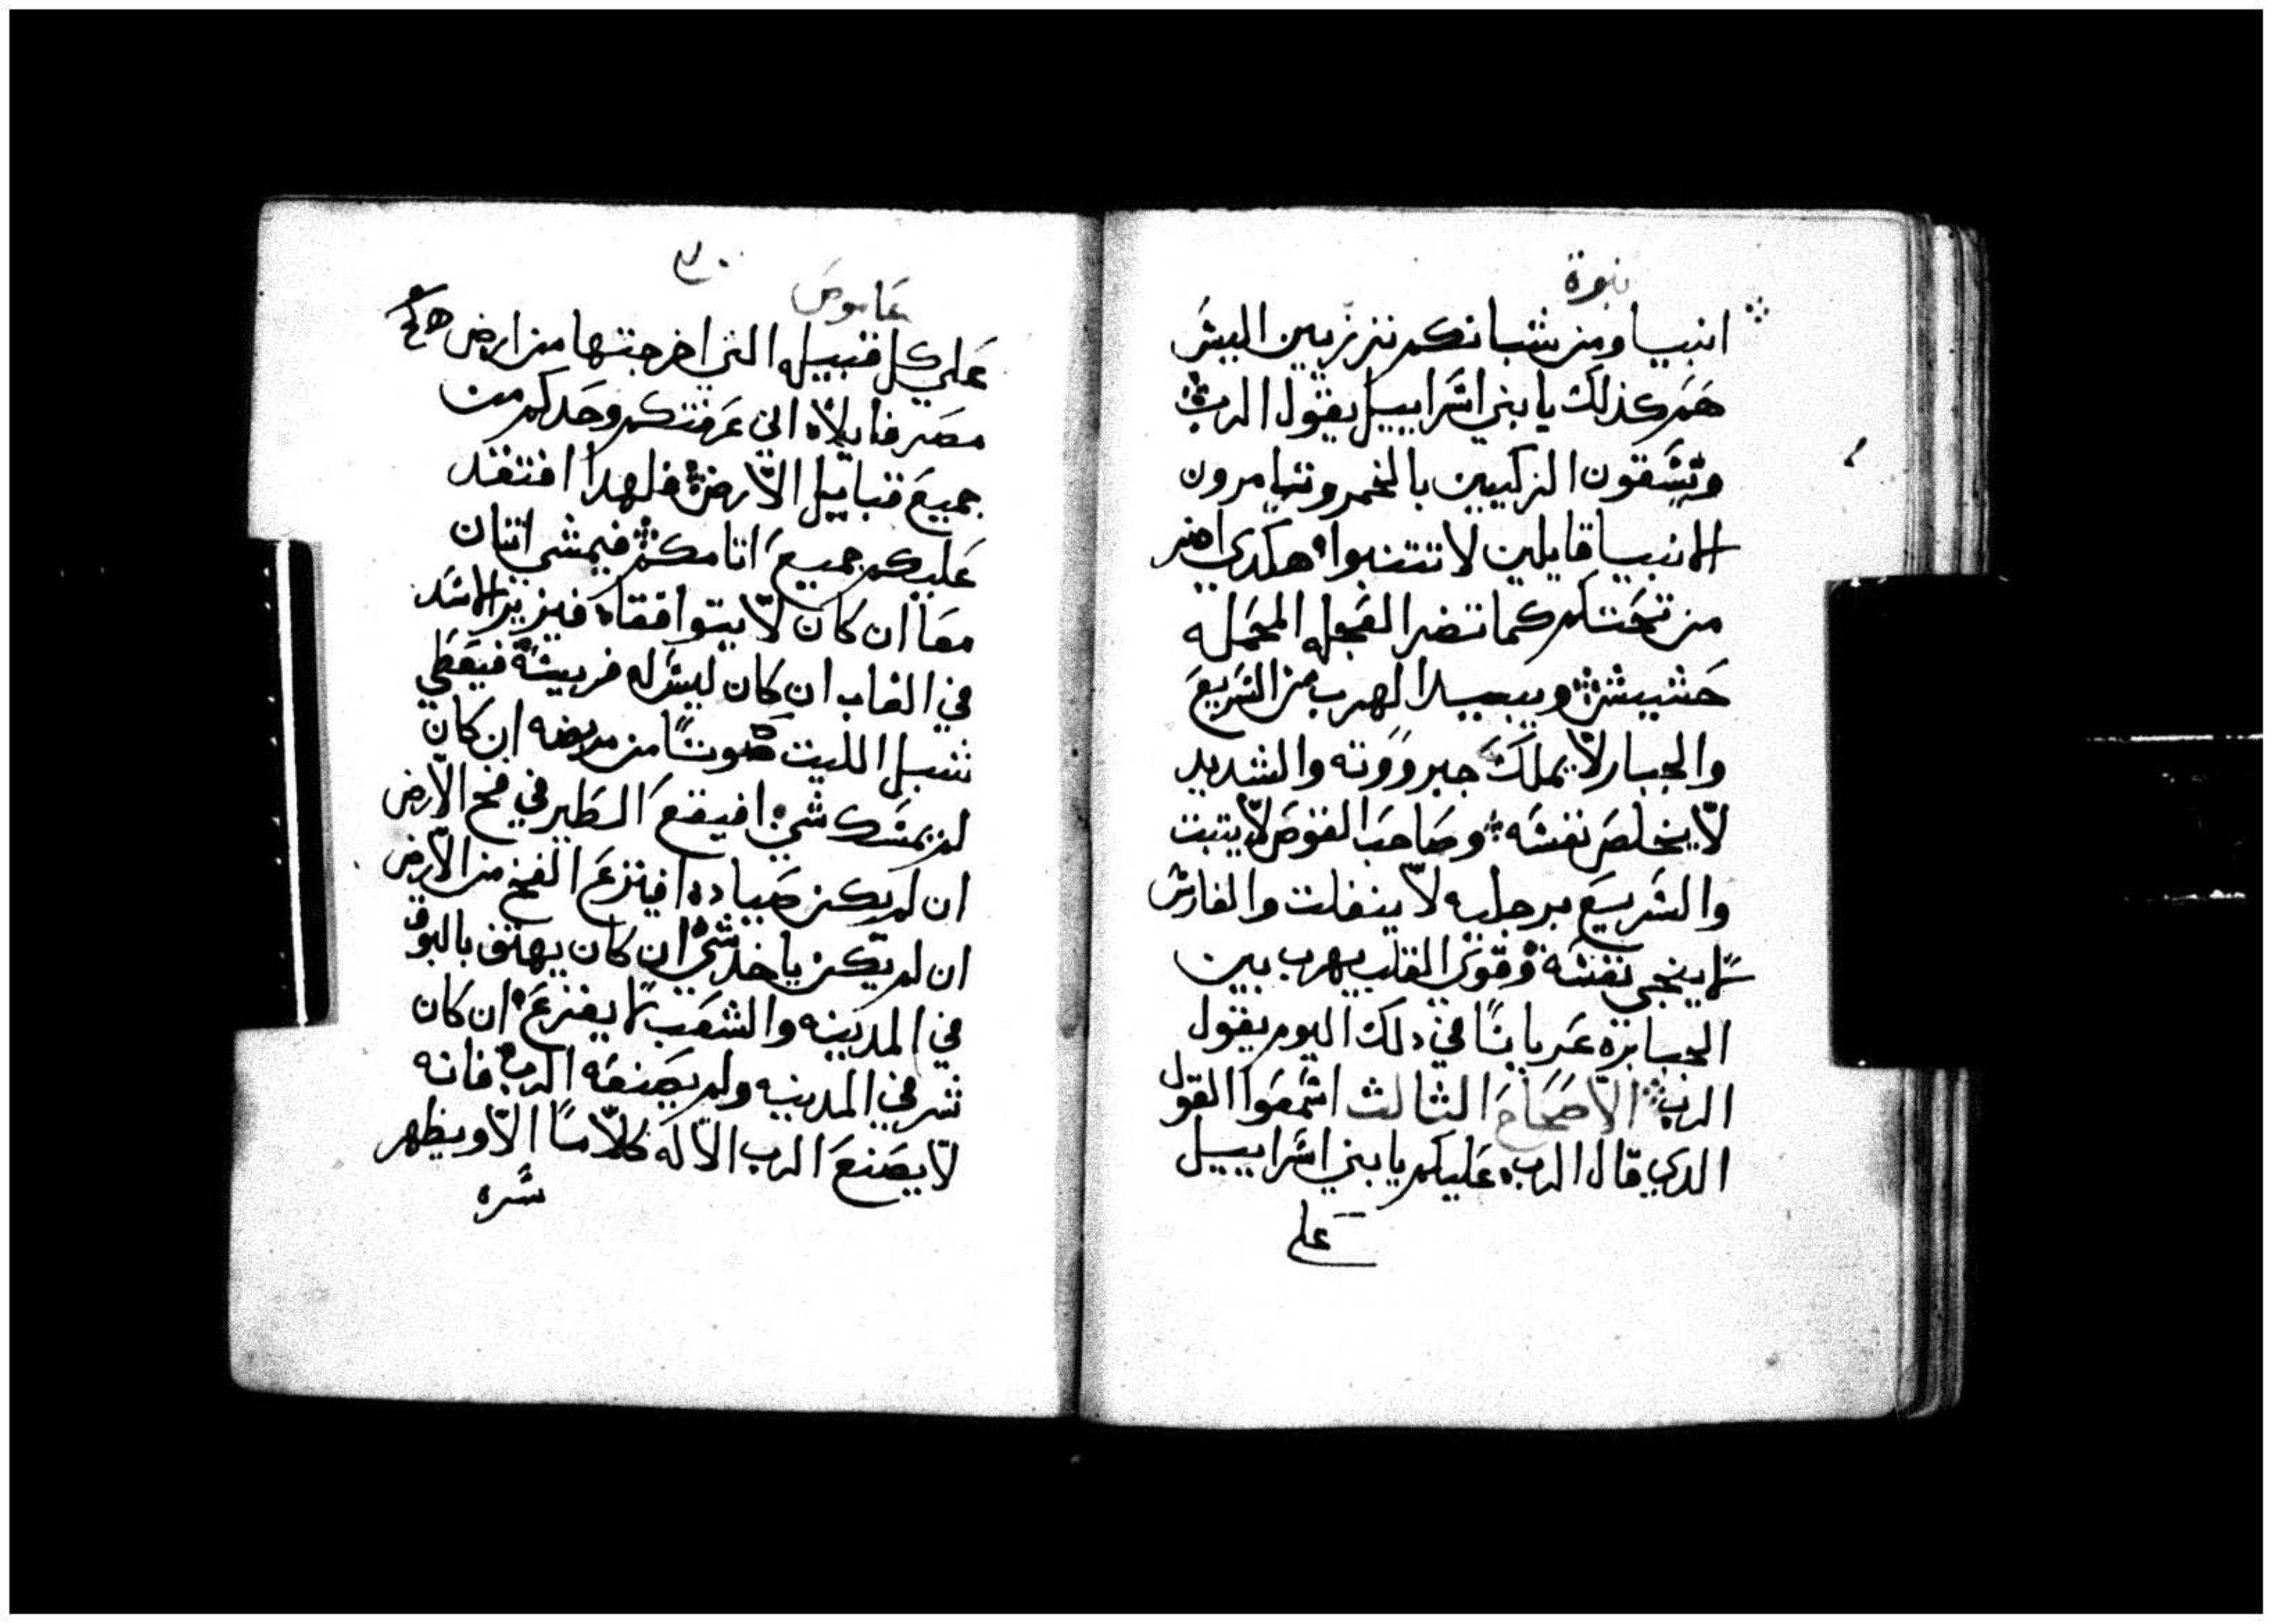 نبوة
انبيا ومن شبانكم نزيزيين اليس
هم كذلك يا بني اسراييل يقول الرب
وتسقون النزكيين بالخمر وتيامرون
الانبيا قايلين لا تتنبوا هكدي اصر
من تحتكم كما تصر العجله المحمله
حشيش ويبيد الهرب من السريع
والجبار لا يملك جبرووته والشديد
لا يخلص نفسه وصاحب القوص لا يتبت
والسريع برجليه لا ينفلت والفارس
لا ينجي نفسه وقوي القلب يهرب بين
الجبابره عريانًا في دلك اليوم يقول
الرب الاصحاح الثالث اسمعوا القول
الدي قال الرب عليكم يا بني اسراييل
علي
عاموص
علي كل قبيله التي اخرجتها من ارض
مصر قايلاه اني عرفتكم وحدكم من
جميع قبايل الارض فلهدا افتقد
عليكم جميع اتامكم فيمشي اتنان
معا ان كان لا يتوافقاه فيزير الاسد
في الغاب ان كان ليس له فريسة فيعطي
شبل الليت صوتًا من مربضه ان كان
لم يمسك شي افيقع الطير في فخ الارض
ان لم يكن صياده افينزع الفخ من الارض
ان لم يكن ياخد شي ان كان يهتف بالبوق
في المدينه والشعب لا يفزع ان كان
شر في المدينه ولم يصنعه الرب فانه
لا يصنع الرب الاله كلامًا الا ويظهر
سره